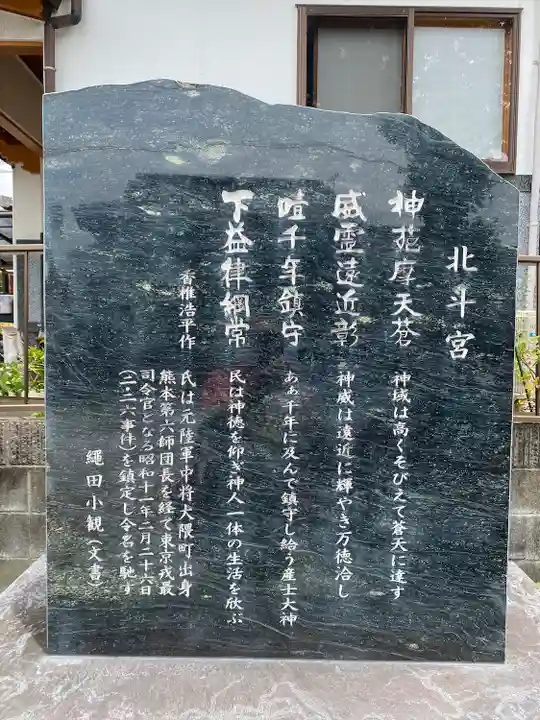 北斗宮
神苑摩天蒼 神域は高くそびえて蒼天に達す
威霊遠近彰 神威は遠近に輝やき万徳洽し
噫千年鎮守 あぁ千年に及んで鎮守し給う産土大神
下益律綱常 民は神徳を仰ぎ神人一体の生活を欣ぶ
香椎浩平作 氏は元陸軍中将大隈町出身
熊本第六師団長を経て東京戒厳
司令官となる昭和十一年二月二十六日
(二・二六事件)を鎮定し令名を馳す
繩田小観(文書)